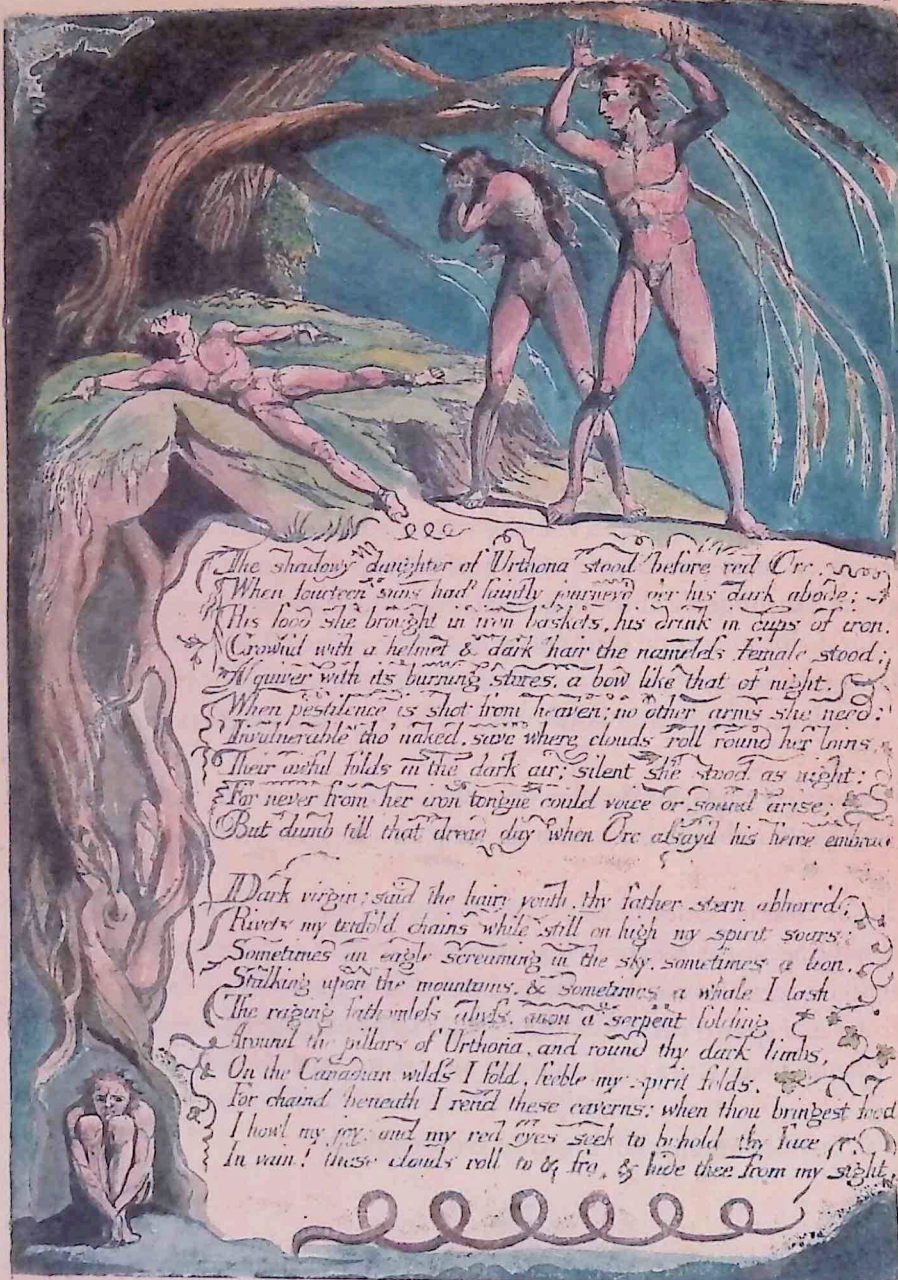 The shadowy daughter of Urthona stood before red Orc.
When fourteen suns had faintly journey'd o'er his dark abode;
His food she brought in iron baskets, his drink in cups of iron.
Crown'd with a helmet & dark hair the nameless female stood;
A quiver with its burning stores, a bow like that of night.
When pestilence is shot from heaven; no other arms she need:
Invulnerable tho' naked, save where clouds roll round her loins,
Their awful folds in the dark air; silent she stood as night;
For never from her iron tongue could voice or sound arise;
But dumb till that dread day when Orc assay'd his fierce embrace

Dark virgin; said the hairy youth, thy father stern abhorr'd;
Rivets my tenfold chains while still on high my spirit soars;
Sometimes an eagle screaming in the sky, sometimes a lion,
Stalking upon the mountains, & sometimes a whale I lash
The raging fathomless abyss, anon a serpent folding
Around the pillars of Urthona, and round thy dark limbs,
On the Canadian wilds I fold, feeble my spirit folds.
For chaind beneath I rend these caverns; when thou bringest food
I howl my joy: and my red eyes seek to behold thy face
In vain! these clouds roll to & fro, & hide thee from my sight